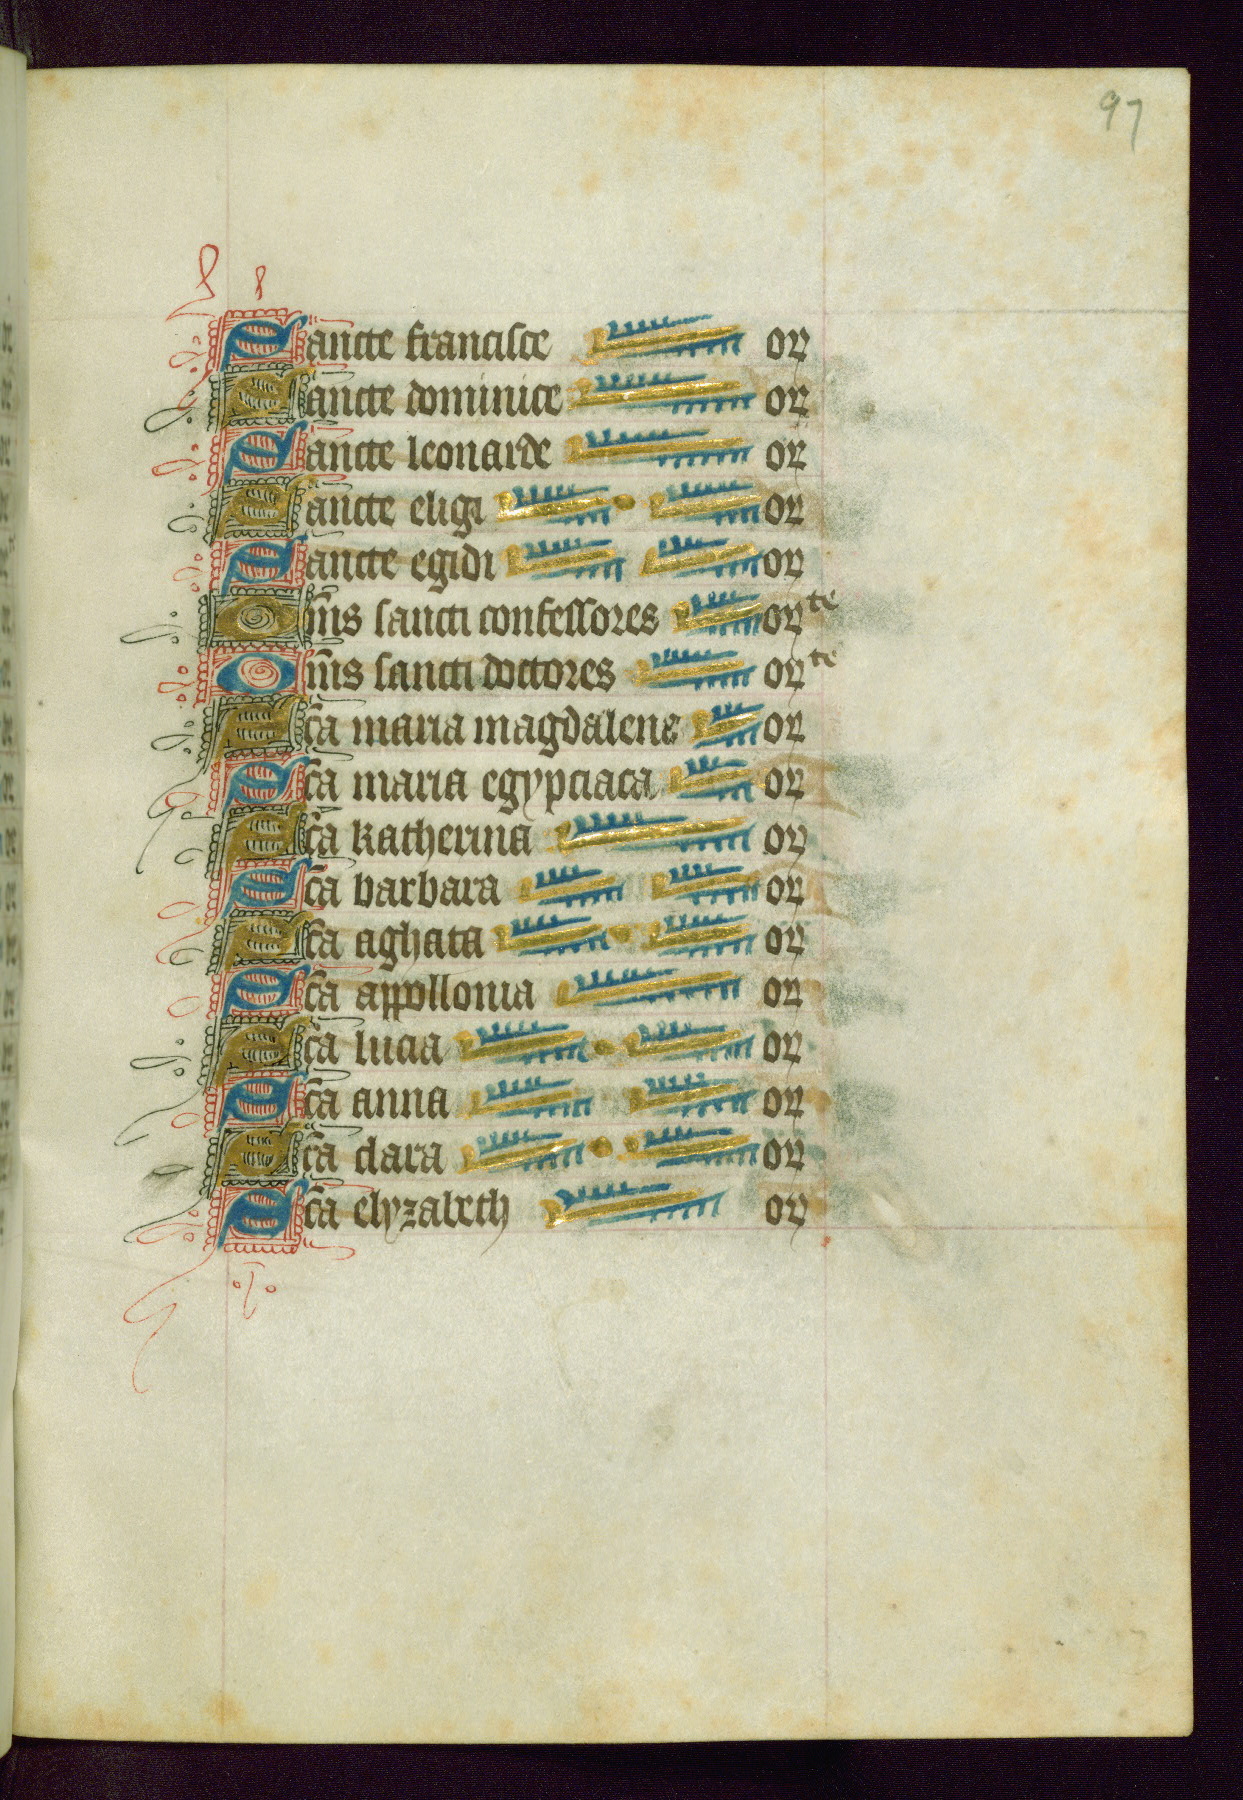 97
Sancte francisce or
Sancte dominice or
Sancte leonarde or
Sancte eligi or
Sancte egidi or
Om̄s sancti confessores orte
Om̄s sancti doctores orte
Sc̄a maria magdalene or
Sc̄a maria egypciaca or
Sc̄a katherina or
Sc̄a barbara or
Sc̄a aghata or
Sc̄a appollonia or
Sc̄a lucia or
Sc̄a anna or
Sc̄a clara or
Sc̄a elyzabeth or